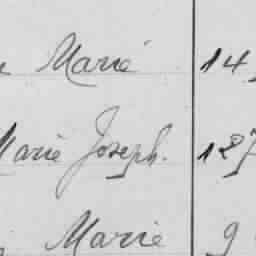 Marie 14
Marie Joseph. 127
Marie 9